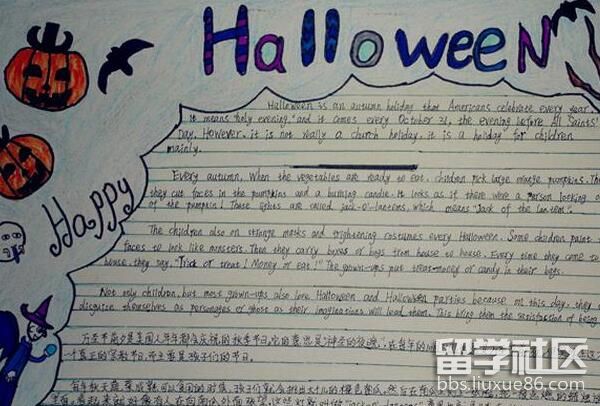 Halloween
Happy
Halloween is an autumn holiday that Americans celebrate every year.
It means "holy evening," and it comes every October 31, the evening before All Saints'
Day. However, it is not really a church holiday, it is a holiday for children
mainly.
Every autumn, When the vegetables are ready to eat, children pick large orange pumpkins. Th
they cut faces in the pumpkins and a burning candle. It looks as if there were a person looking o
of the pumpkin! These lights are called jack-o'-lanterns, which means "Jack of the lantern".
The children also on strange masks and frightening costumes every Halloween. Some children paint
faces to look like monsters. Then they carry boxes or bags from house to house. Every time they come to
house, they say, "Trick or treat! Money or eat!" The grown-ups put treat-money or candy in their bags.
Not only children, but most grown-ups also love Halloween and Halloween parties because on this day, they
disguise themselves as personages or ghost as their imaginations will lead them. This bring them the satisfaction of being
万圣节前夕是美国人年年都会庆祝的秋季节日。它的意思是"神圣的夜晚",在每年的
个真正的宗教节日,而主要是孩子们的节日。
每年秋天蔬菜成熟可以食用的时候,孩子们就会挑出大个儿的橙色南瓜。然后在南瓜
留学社区
bbs.liuxue86.com